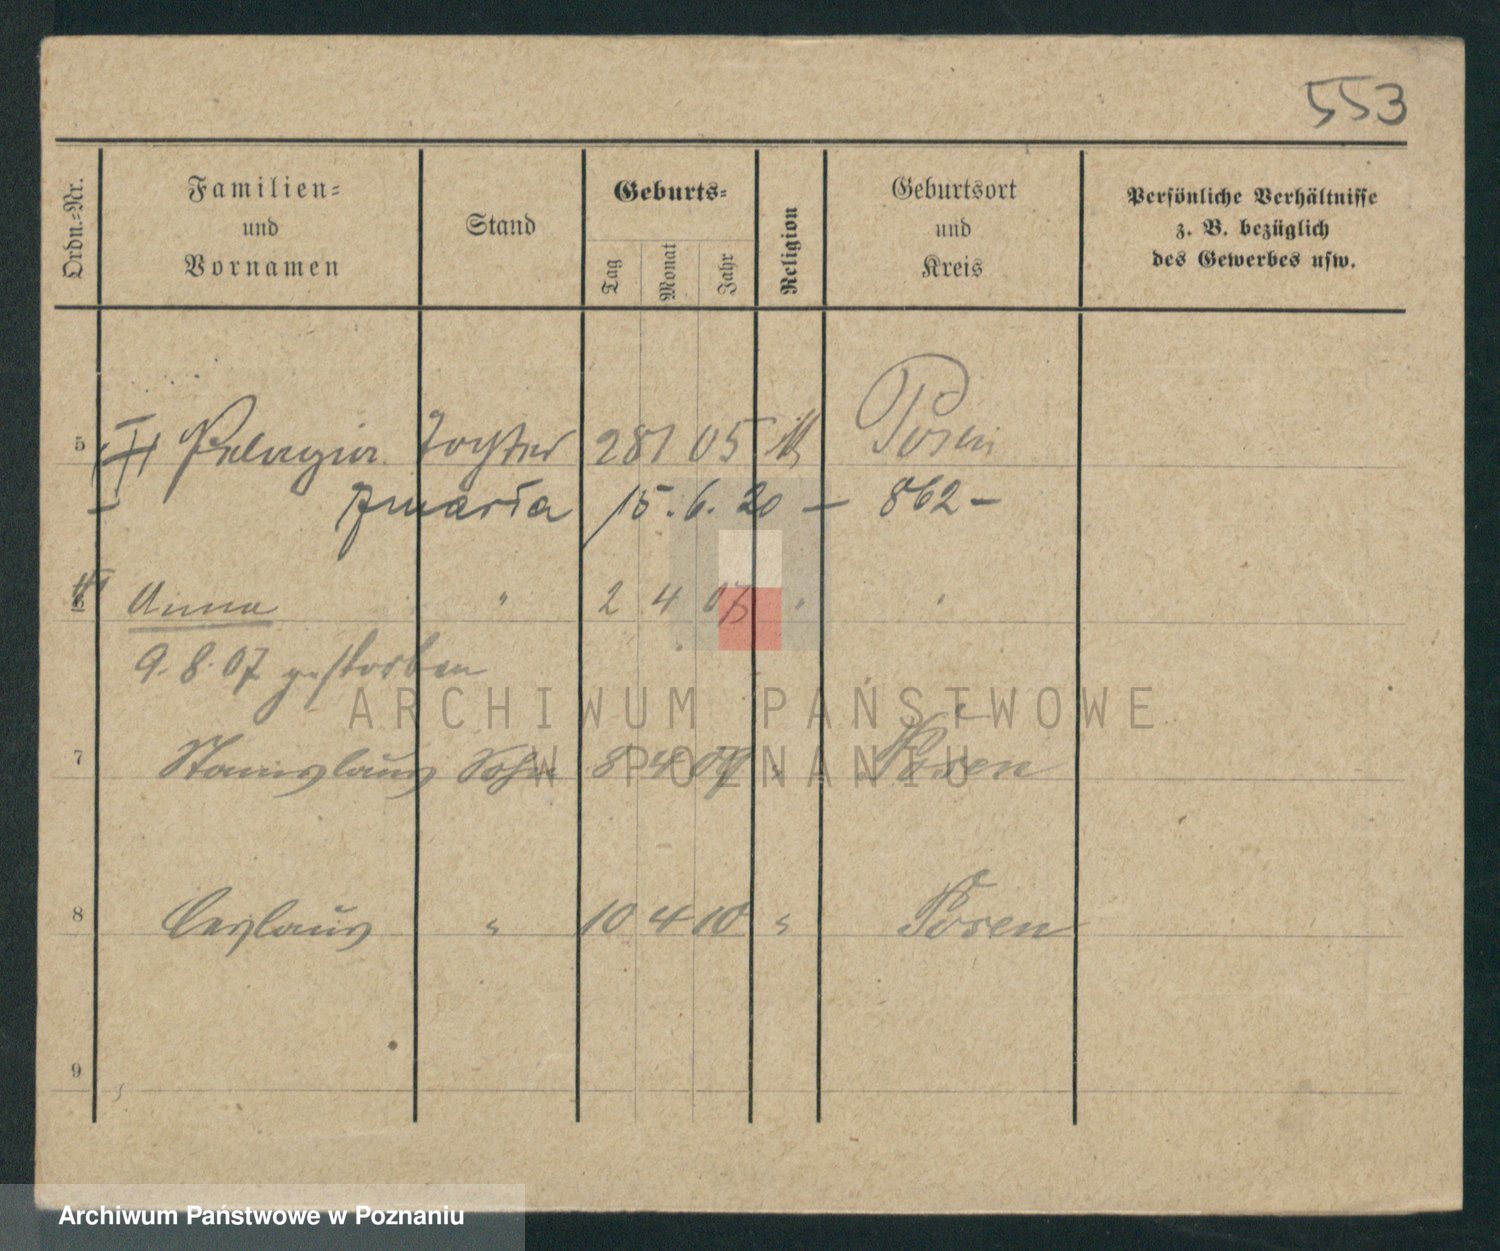 553
Ordn.=Nr.
Familien=
und
Vornamen
Stand
Geburts=
Tag
Monat
Jahr
Religion
Geburtsort
und
Kreis
Persönliche Verhältnisse
z. B. bezüglich
des Gewerbes usw.
5 Pelagia Tochter 28 1 05 Posen
zmarła 15.6.20 – 862 –
Anna " 2 4 07 " "
9.8.07 gestorben
ARCHIWUM PAŃSTWOWE
W POZNANIU
7 Stanislaus Sohn 8 4 09 " Posen
8 Ceslaus " 10 4 10 " Posen
9
Archiwum Państwowe w Poznaniu